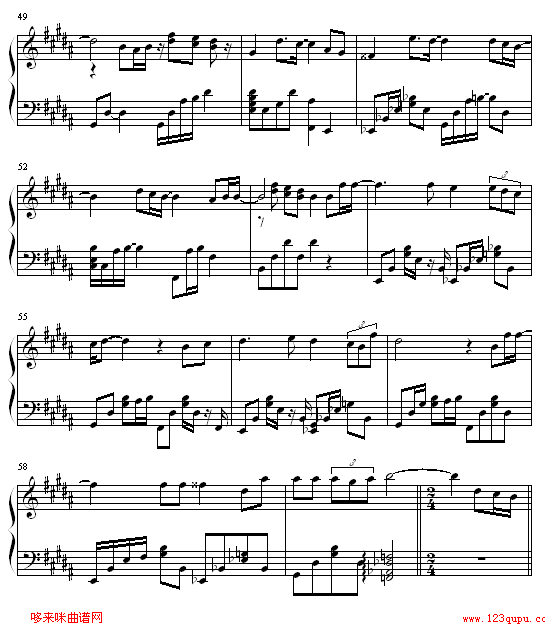 49
52
3
55
3
3
58
3
2
4
2
4
哆来咪曲谱网
www.123qupu.com